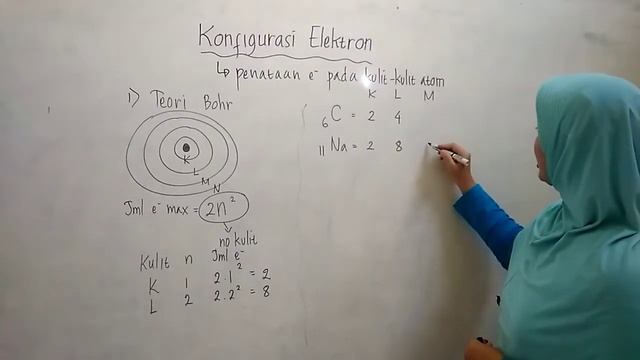 Konfigurasi Elektron
↳ penataan e⁻ pada kulit-kulit atom
1) Teori Bohr
K
L
M
N
Jml e⁻ max = 2n²
no kulit
Kulit n Jml e⁻
K 1 2.1² = 2
L 2 2.2² = 8
K L M
₆C = 2 4
₁₁Na = 2 8